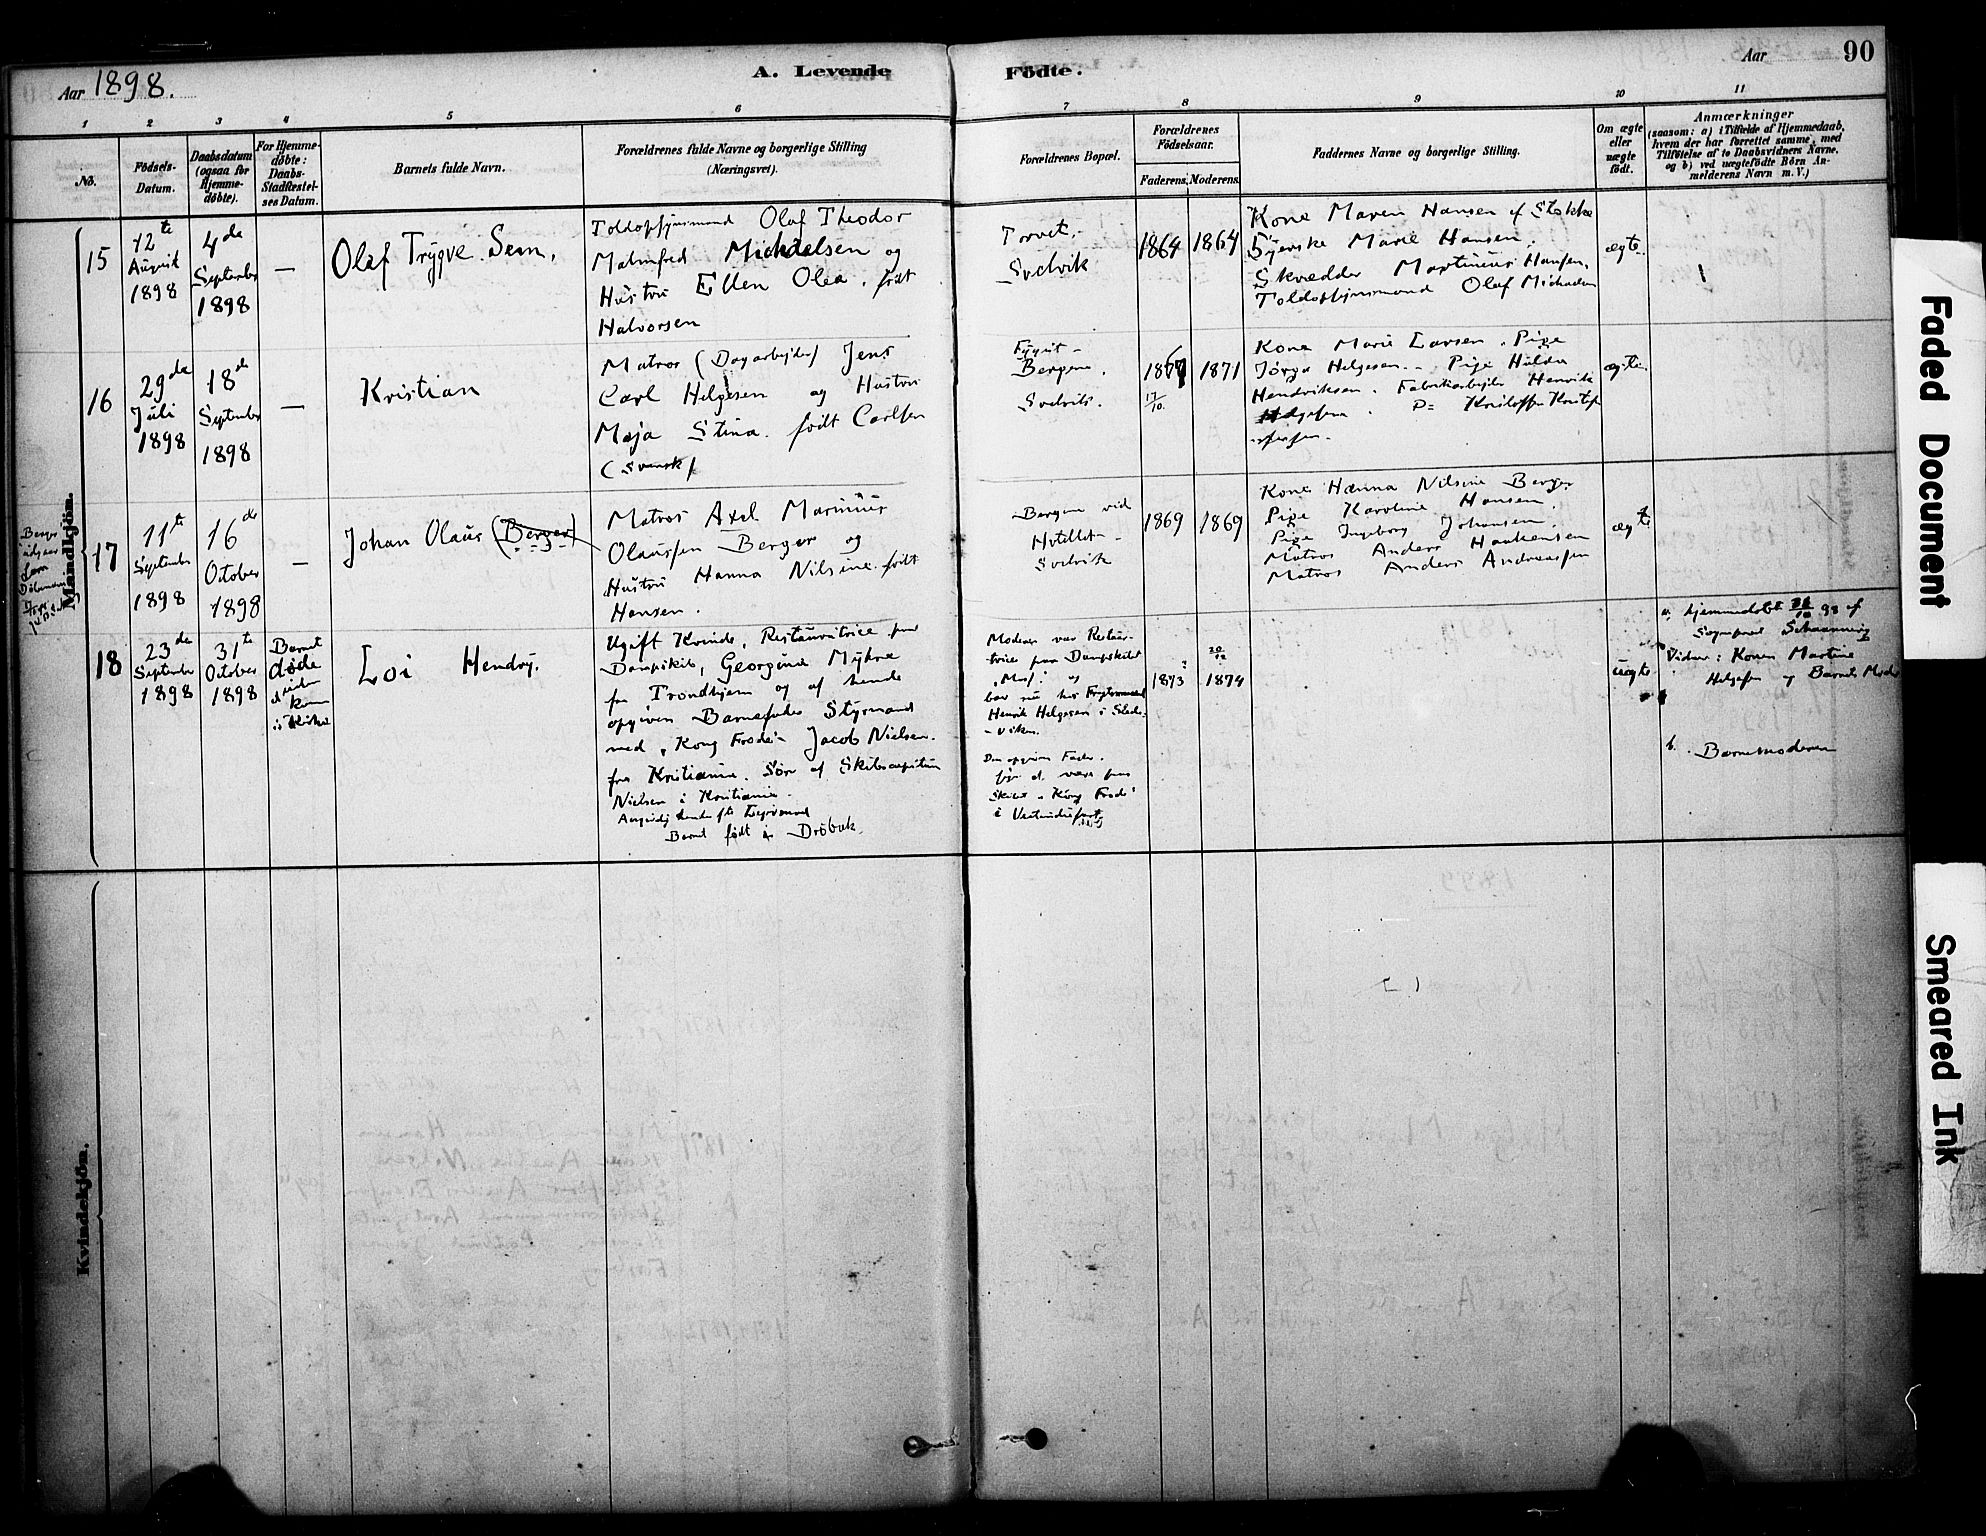 Aar 1898.
A. Levende
Fødte.
Aar
90
1
2
3
4
5
6
7
8
9
10
11
No.
Fødsels-
Datum.
Daabsdatum
(ogsaa for
Hjemme-
døbte).
For Hjemme-
døbte:
Daabs-
Stadfæstel-
ses Datum.
Barnets fulde Navn.
Forældrenes fulde Navne og borgerlige Stilling
(Næringsvei).
Forældrenes Bopæl.
Forældrenes
Fødselsaar.
Faderens.
Moderens.
Faddernes Navne og borgerlige Stilling.
Om ægte
eller
uægte
født.
Anmærkninger
(saasom: a) i Tilfælde af Hjemmedaab,
hvem der har forrettet samme, med
Tilføielse af to Daabsvidners Navne,
og b) ved uægtefødte Börn An-
melderens Navn m. V.)
Mandkjön.
15
12te
August
1898
4de
September
1898
—
Olaf Trygve Sem.
Toldopsynsmand Olaf Theodor
Malmfred Michaelsen og
Hustru Ellen Olea. født
Halvorsen
Torvet.
Svelvik
1864
1864
Kone Maren Hansen af Stokke
Syerske Marie Hansen.
Skrædder Martinius Hansen.
Toldopsynsmand Olaf Michaelsen
ægte.
16
29de
Juli
1898
18de
September
1898
—
Kristian
Matros (Dagarbejder) Jens
Carl Helgesen og Hustru
Maja Stina. født Carlsen
(Svensk)
Bergene.
Svelvik.
17/10.
1871
Kone Marie Larsen. Pige
Helgesen. Pige Hilda
Hendriksen. Fabrikarbejder Henrik
Helgesen.
ægte.
17
11te
September
1898
16de
October
1898
—
Johan Olaus (Berger)
Matros Axel Marinius
Olaussen Berger og
Hustru Hanna Nilsine. født
Hansen.
Bergene ved
Hotellet
Svelvik
1869
1869
Kone Hanna Nilsine Berger
Pige Karoline Hansen.
Pige Ingeborg Johansen.
Matros Anders Haakensen
Matros Anders Andreassen
ægte
18
23de
September
1898
31te
October
1898
Barnet
døde
uden
at komme
i Kirke
Loi Hendry.
Ugift Kvinde, Restauratrice paa
Dampskib, Georgine Myhre
fra Trondhjem og af hende
opgiven Barnefader Styrmand
med "Kong Frode" Jacob Nielsen.
fra Kristiania. Søn af Skibscaptein
Nielsen i Kristiania.
Barnet født i Drøbak.
Moderen var Restau-
trice paa Dampskibet
bor nu hos
Henrik Helgesen i
Den opgivne Fader.
Skibet "Kong Frode"
1873
20/12
1874
uægte
a. hjemmedøbt 98 af
Sogneprest Schanning
Vidner: Konen Martine
Helgesen og Barnets Moder
b. Barnemoderen
Kvindekjön.
Faded Document
Smeared Ink